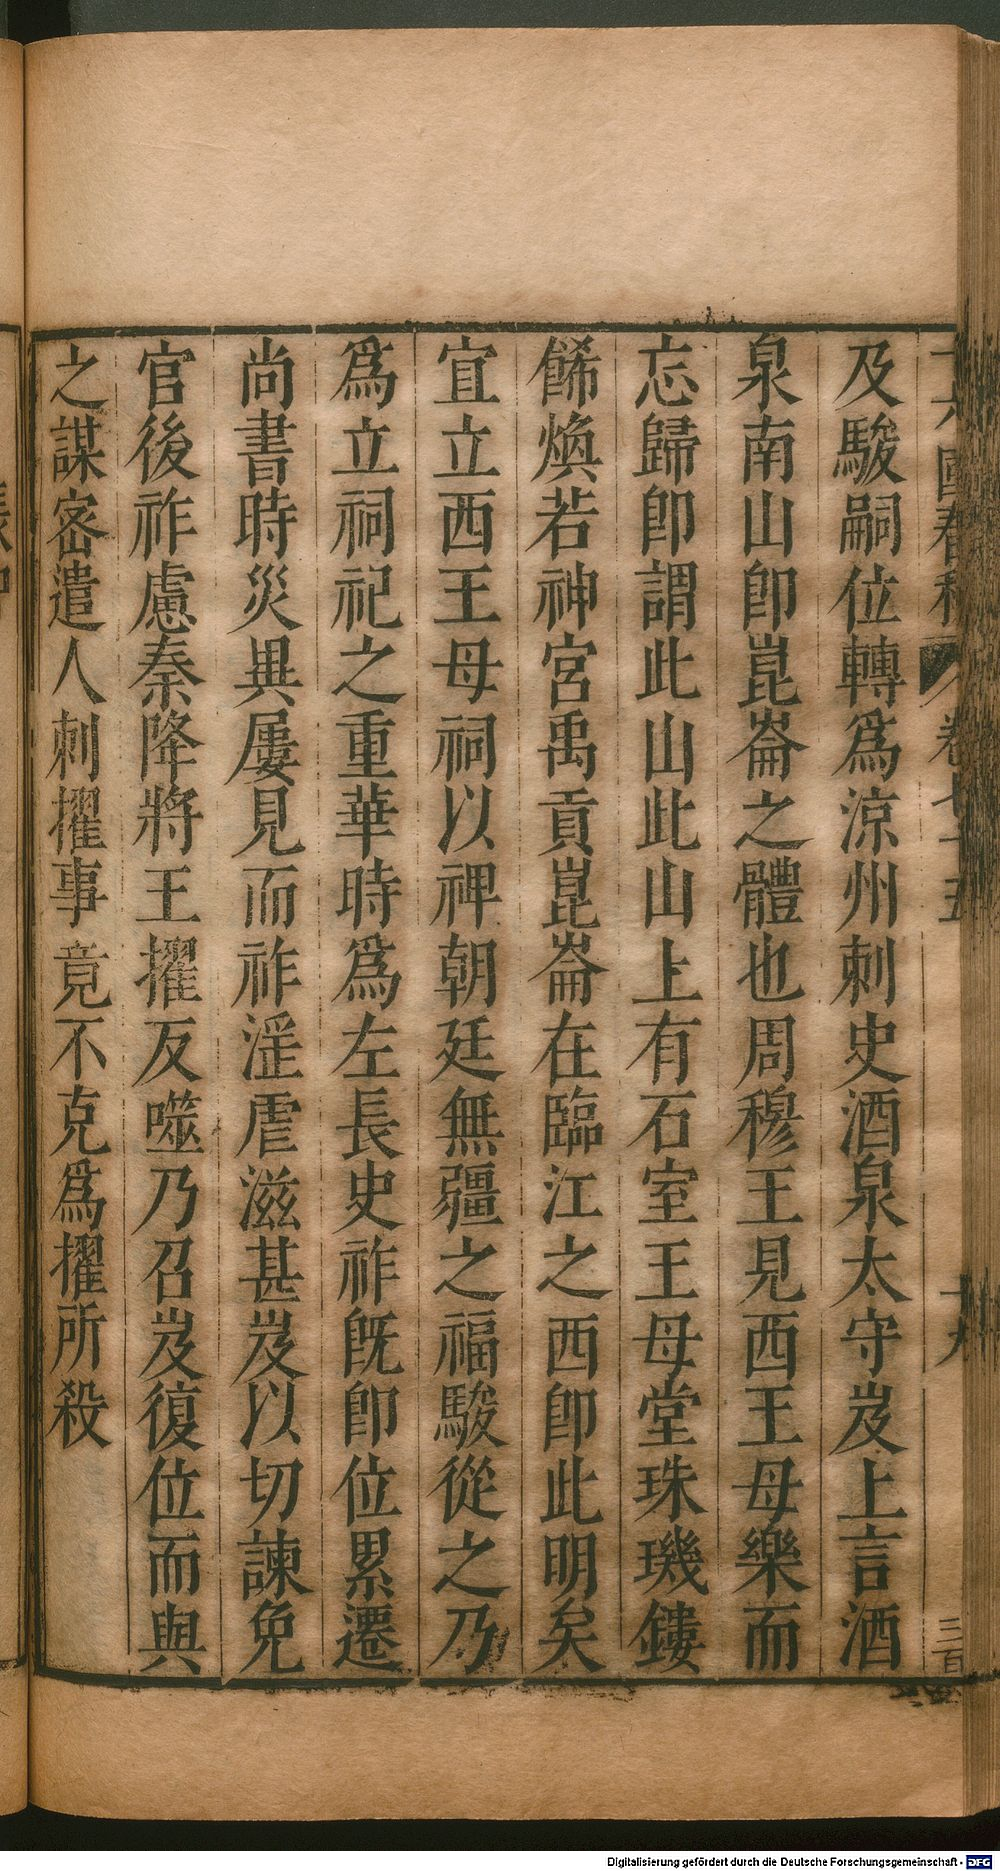 十六國春秋 卷七十五 十九 三百
及駿嗣位轉爲涼州刺史酒泉太守岌上言酒
泉南山卽崑崙之體也周穆王見西王母樂而
忘歸卽謂此山此山上有石室王母堂珠璣鏤
餙煥若神宮禹貢崑崙在臨江之西卽此明矣
宜立西王母祠以禆朝廷無疆之福駿從之乃
爲立祠祀之重華時爲左長史祚旣卽位累遷
尚書時災異屢見而祚滛虐滋甚岌以切諫免
官後祚慮秦降將王擢反噬乃召岌復位而與
之謀密遣人刺擢事竟不克爲擢所殺
Digitalisierung gefördert durch die Deutsche Forschungsgemeinschaft - DFG